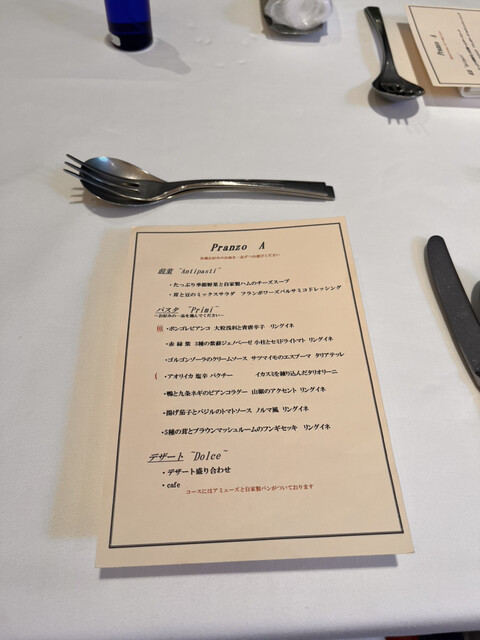 Pranzo A
前菜 ~Antipasti~
・たっぷり季節野菜と自家製ハムのチーズスープ
・茸と豆のミックスサラダ フランボワーズバルサミコドレッシング
パスタ ~Primi~
~お好みの一品を選んでください~
・ボンゴレビアンコ 大粒浅利と青唐辛子 リングイネ
・赤 緑 紫 3種の紫蘇ジェノベーゼ 小柱とセミドライトマト リングイネ
・ゴルゴンゾーラのクリームソース サツマイモのエスプーマ タリアテッレ
・アオリイカ 塩辛 パクチー イカスミを練り込んだタリオリーニ
・鴨と九条ネギのビアンコラグー 山椒のアクセント リングイネ
・揚げ茄子とバジルのトマトソース ノルマ風 リングイネ
・5種の茸とブラウンマッシュルームのアンギセッキ リングイネ
デザート ~Dolce~
・デザート盛り合わせ
・cafe
コースにはアミューズと自家製パンがついております
Pranzo A